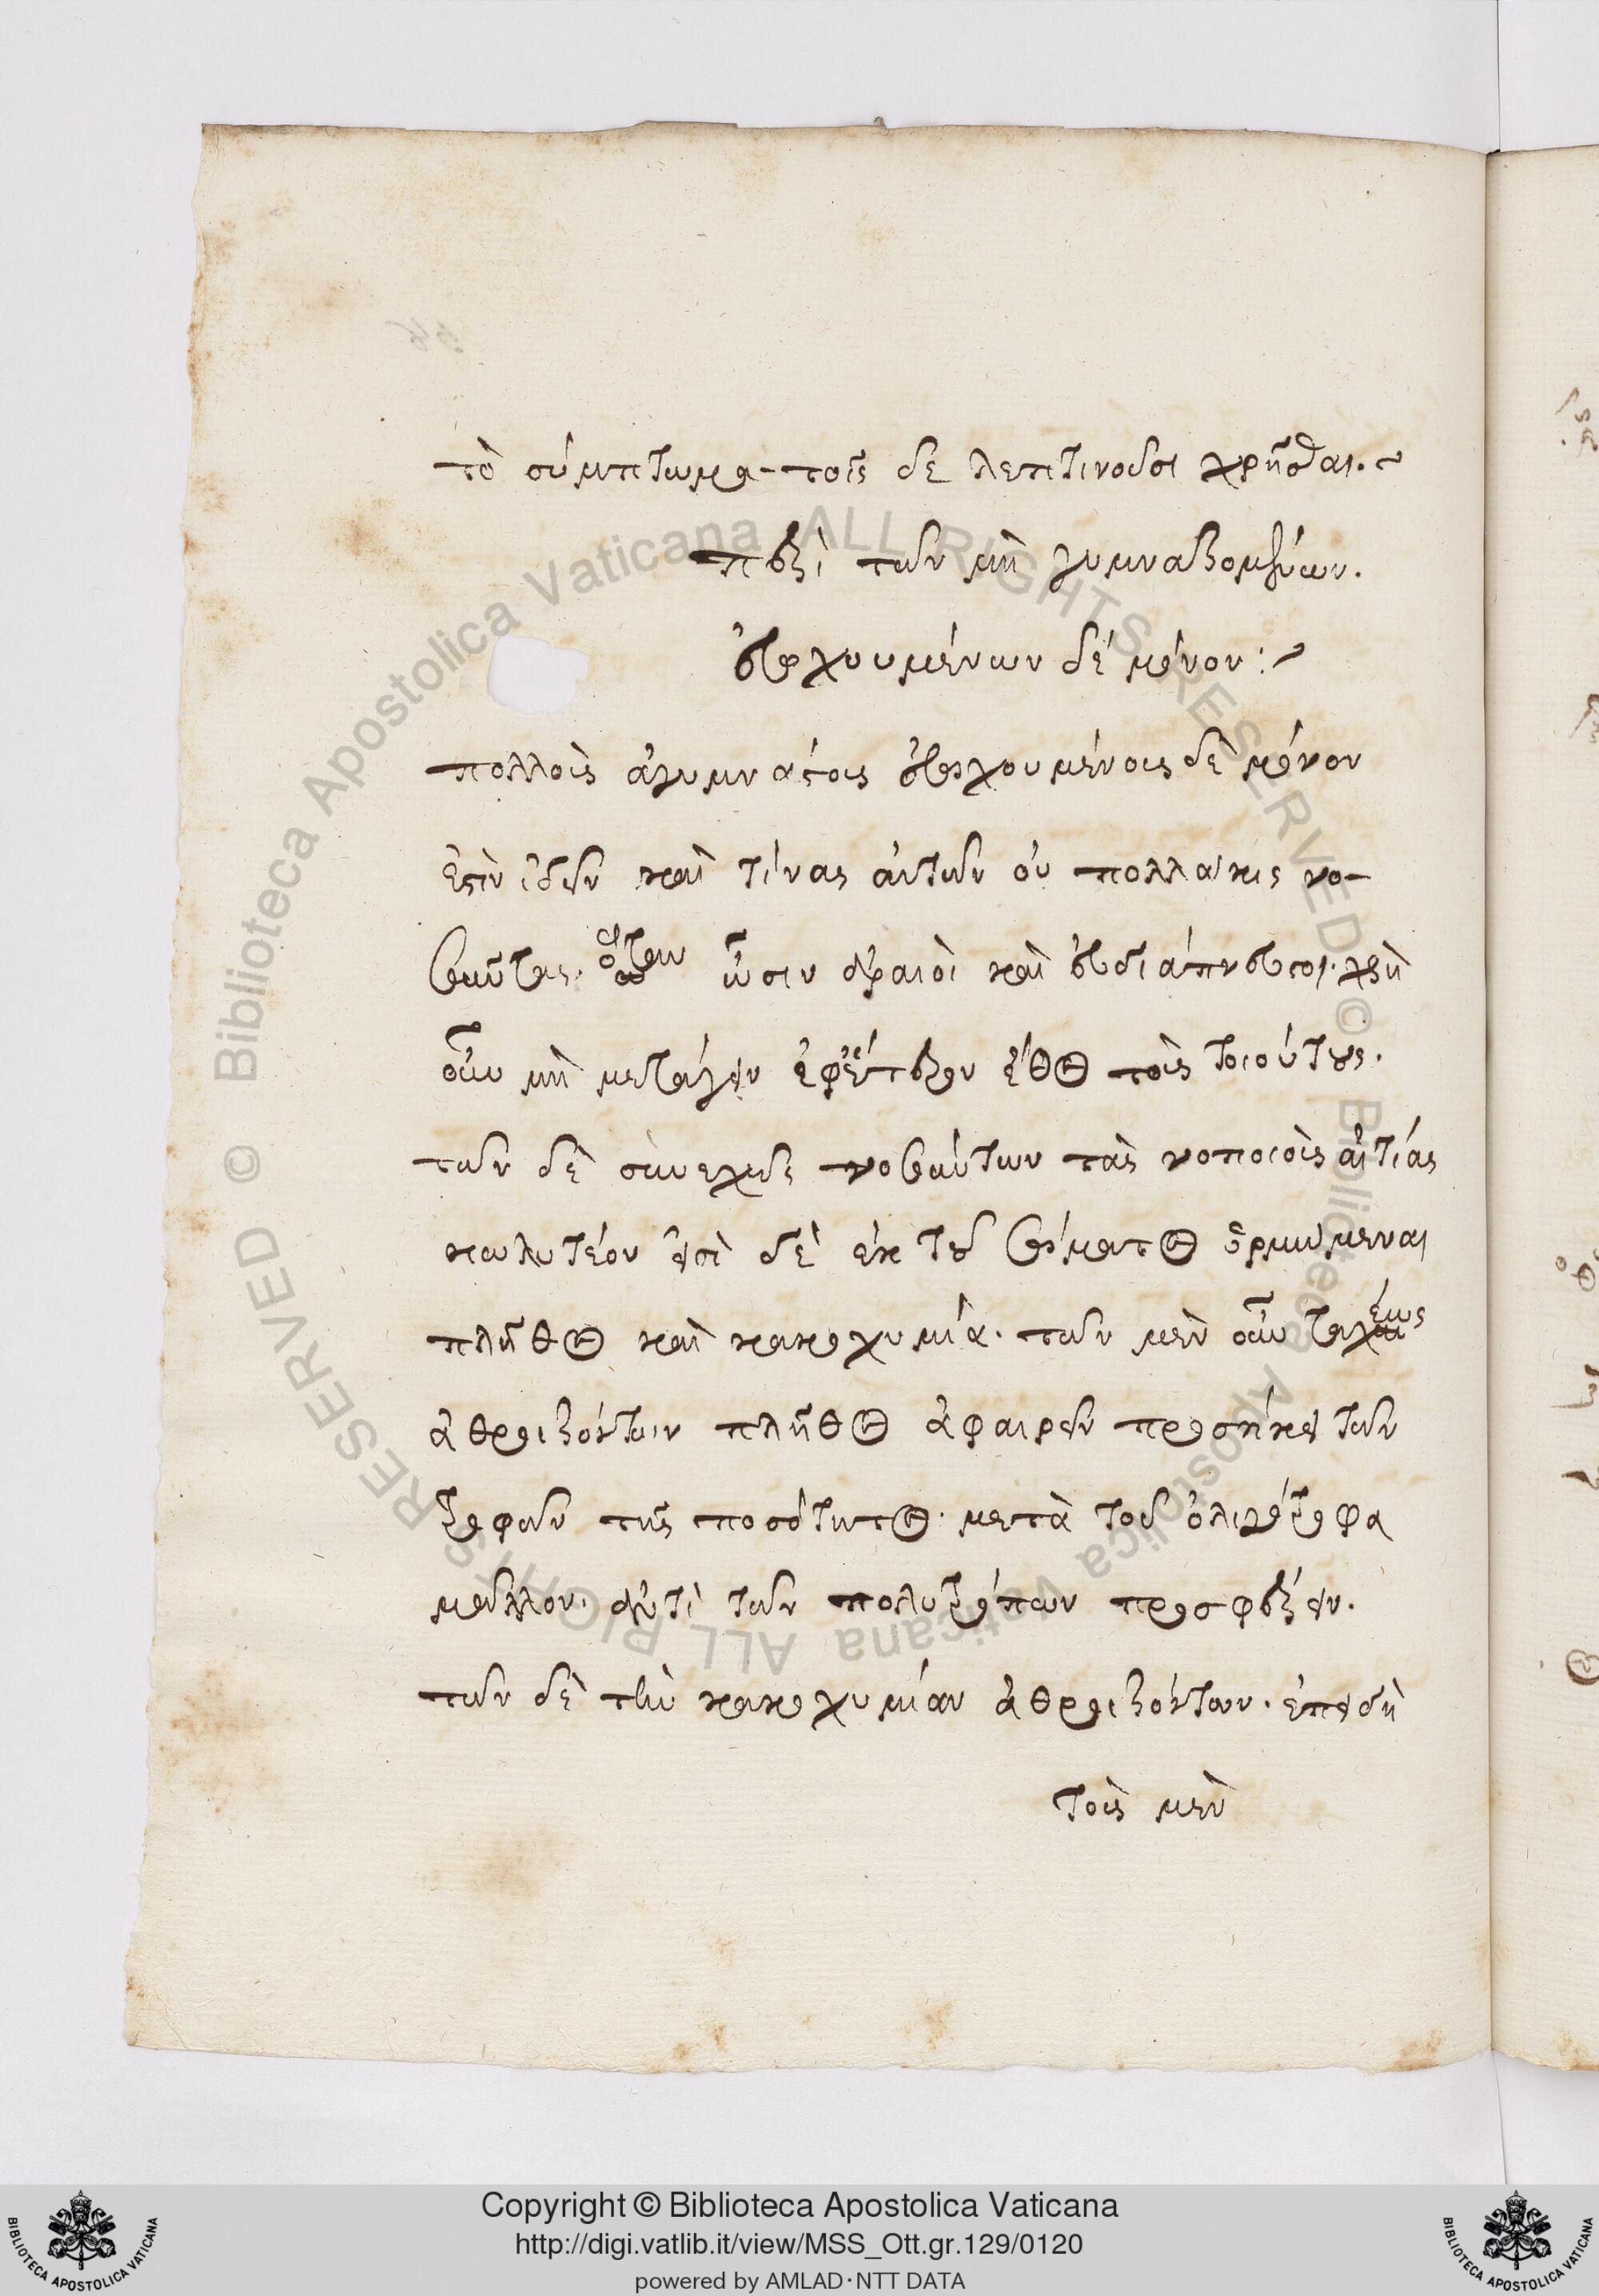 τὸ σύμπτωμα τοῖς δὲ λεπτινοῦσι χρῆσθαι.
περὶ τῶν μὴ γυμναζομένων.
εὐωχουμένων δέ μόνον:
πολλοὶς ἀγυμνάστοις εὐωχουμένοις δὲ μόνον
ἐστὶν ἰδεῖν καὶ τίνας αὐτῶν οὐ πολλάκις νο-
σοῦντας. ὅταν ὦσιν ἀραιοὶ καὶ εὐδιάπνευστοι. χρὴ
οὖν μὴ μετάγειν ἐφ' ἕτερον ἔθος τοὺς τοιούτους.
τῶν δὲ συνεχῶς νοσούντων τὰς νοποιοὶς αἰτίας
κωλυτέον εἰσὶ δέ ἐκ τοῦ σώματος ὁρμώμεναι
πλῆθος καὶ κακοχυμία. τῶν μὲν οὖν ταχέως
ἀθροιζόντων πλῆθος ἀφαιρεῖν προσήκει τῶν
τροφῶν τῆς ποσότητος. μετὰ τοῦ ὀλιγότροφα
μᾶλλον. ἀντὶ τῶν πολυτρόπων προσφέρειν.
τῶν δὲ τὴν κακοχυμίαν ἀθροιζόντων. ἐπειδὴ
τοὶς μὲν
Copyright © Biblioteca Apostolica Vaticana
http://digi.vatlib.it/view/MSS_Ott.gr.129/0120
powered by AMLAD·NTT DATA